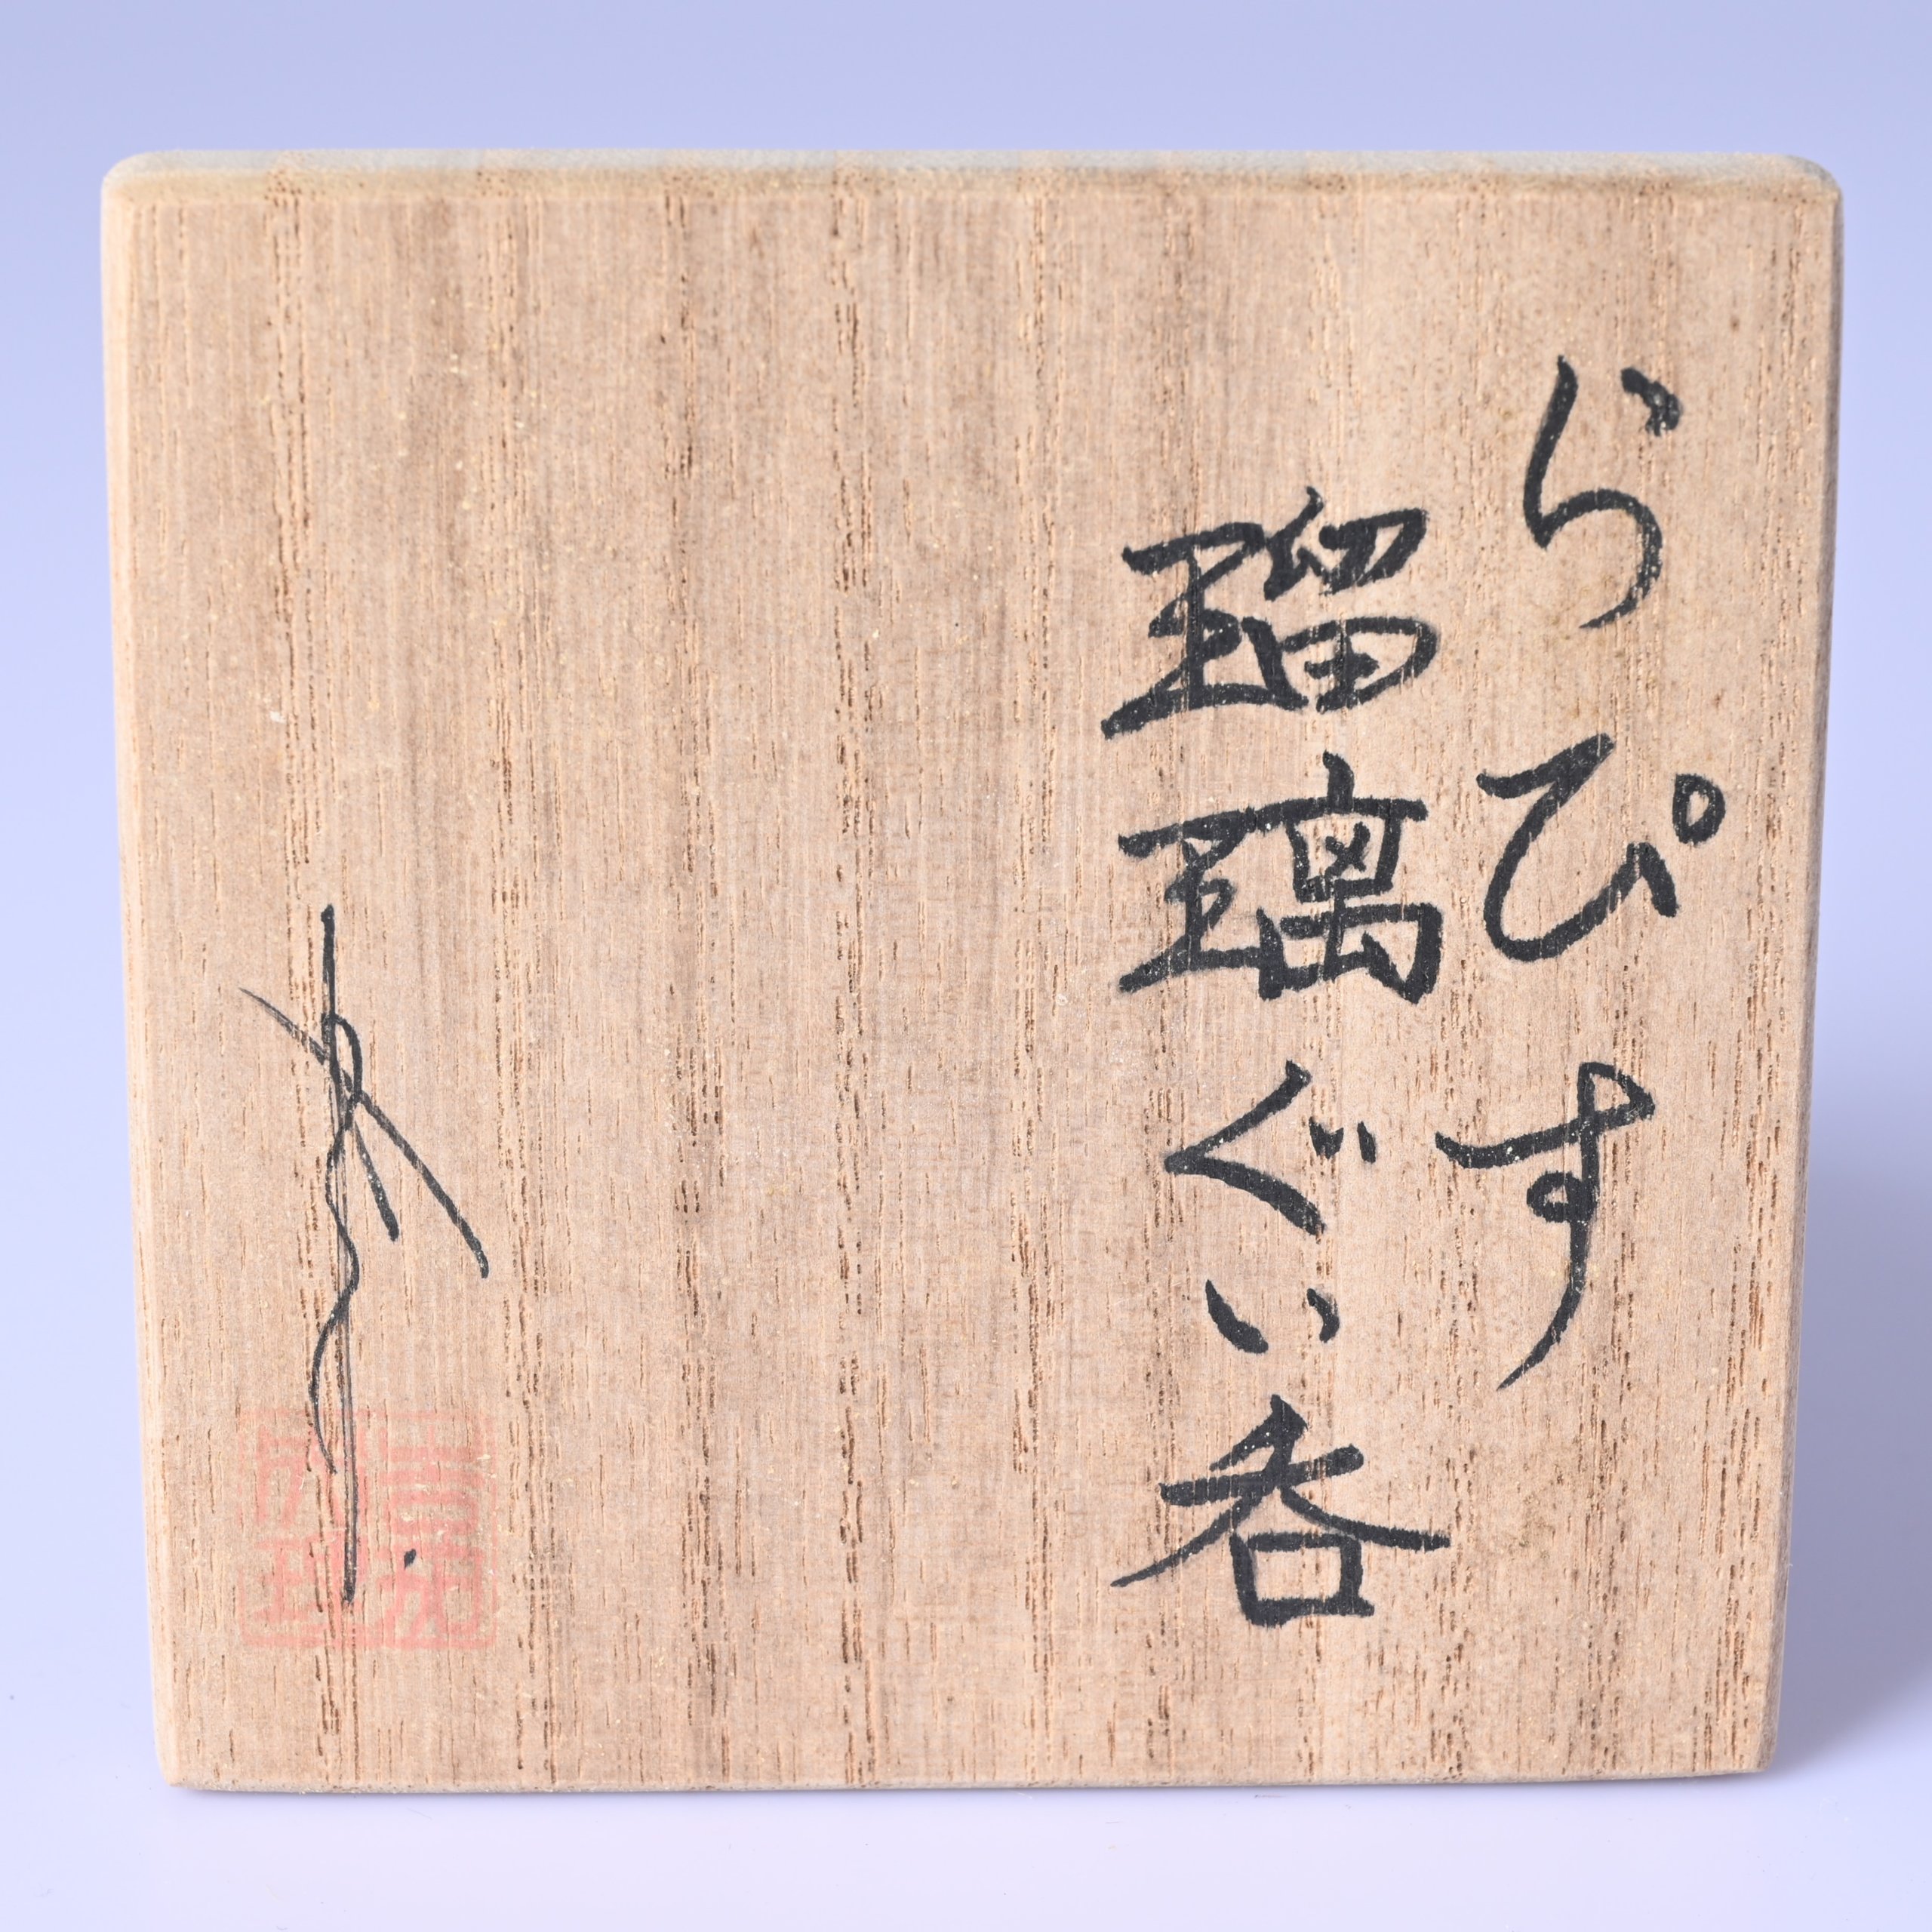 らぴす
瑠璃ぐい呑